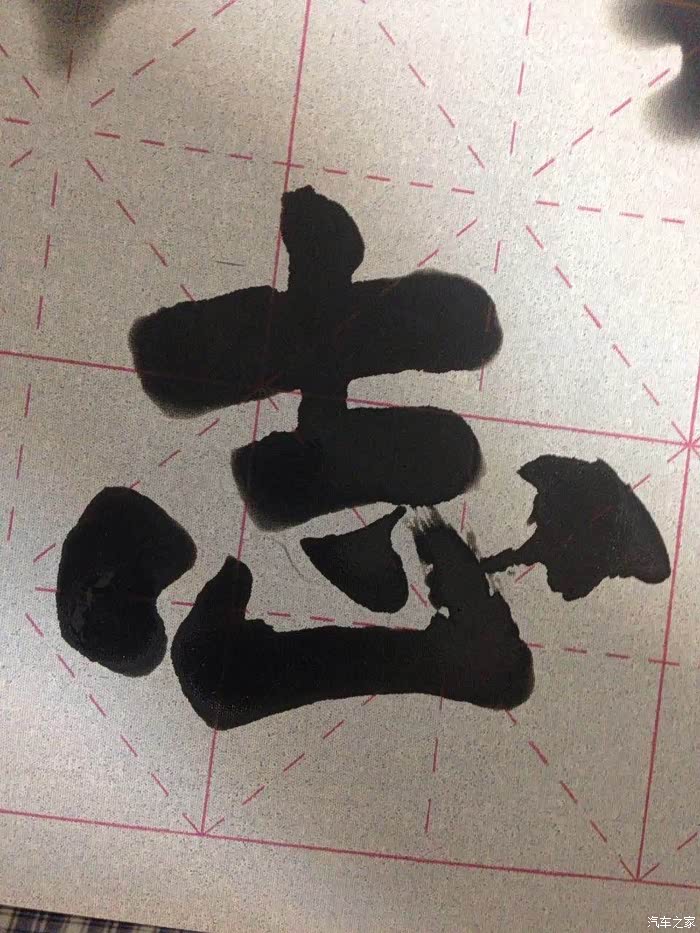 志
汽车之家